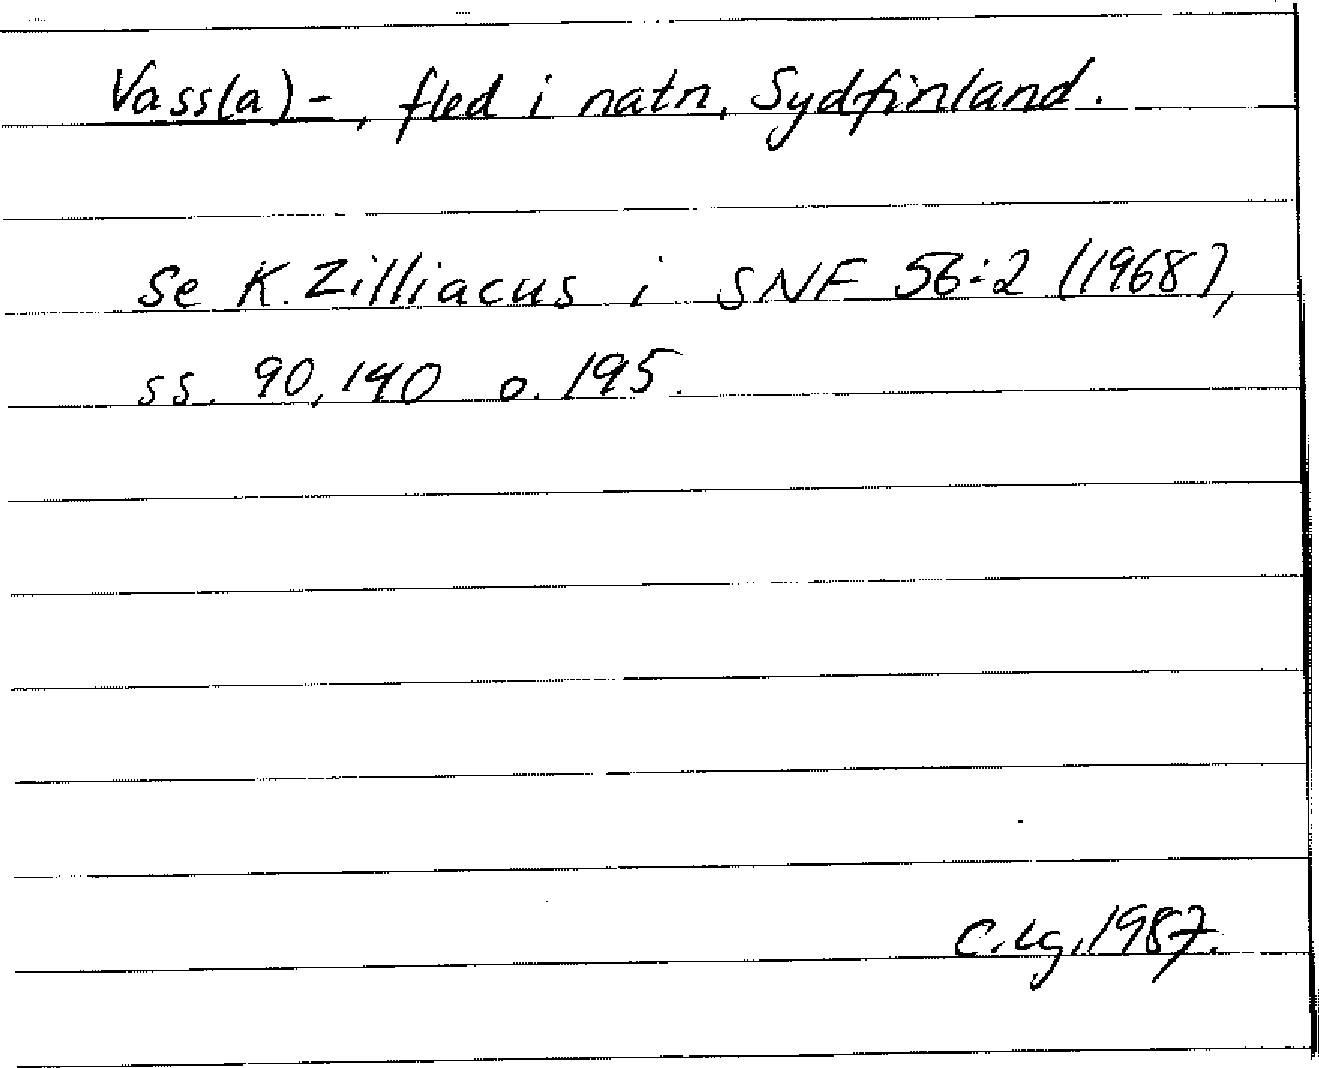 Vass(a)-, fled i natn, Sydfinland.
Se K. Zilliacus i SNF 56:2 (1968),
ss. 90, 140 o. 195.
C.Lg. 1987.